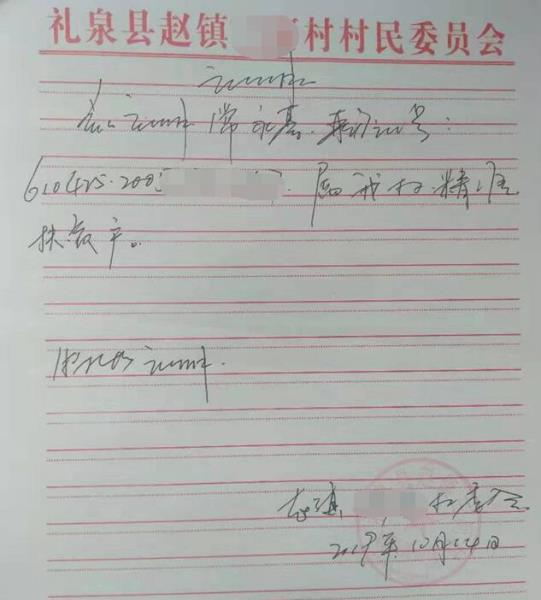 礼泉县赵镇 村村民委员会
证明
兹证明常永亮，身份证号：
610425·200
属我村精准
扶贫户。
特此证明.
赵镇 村委会
2019年10月24日